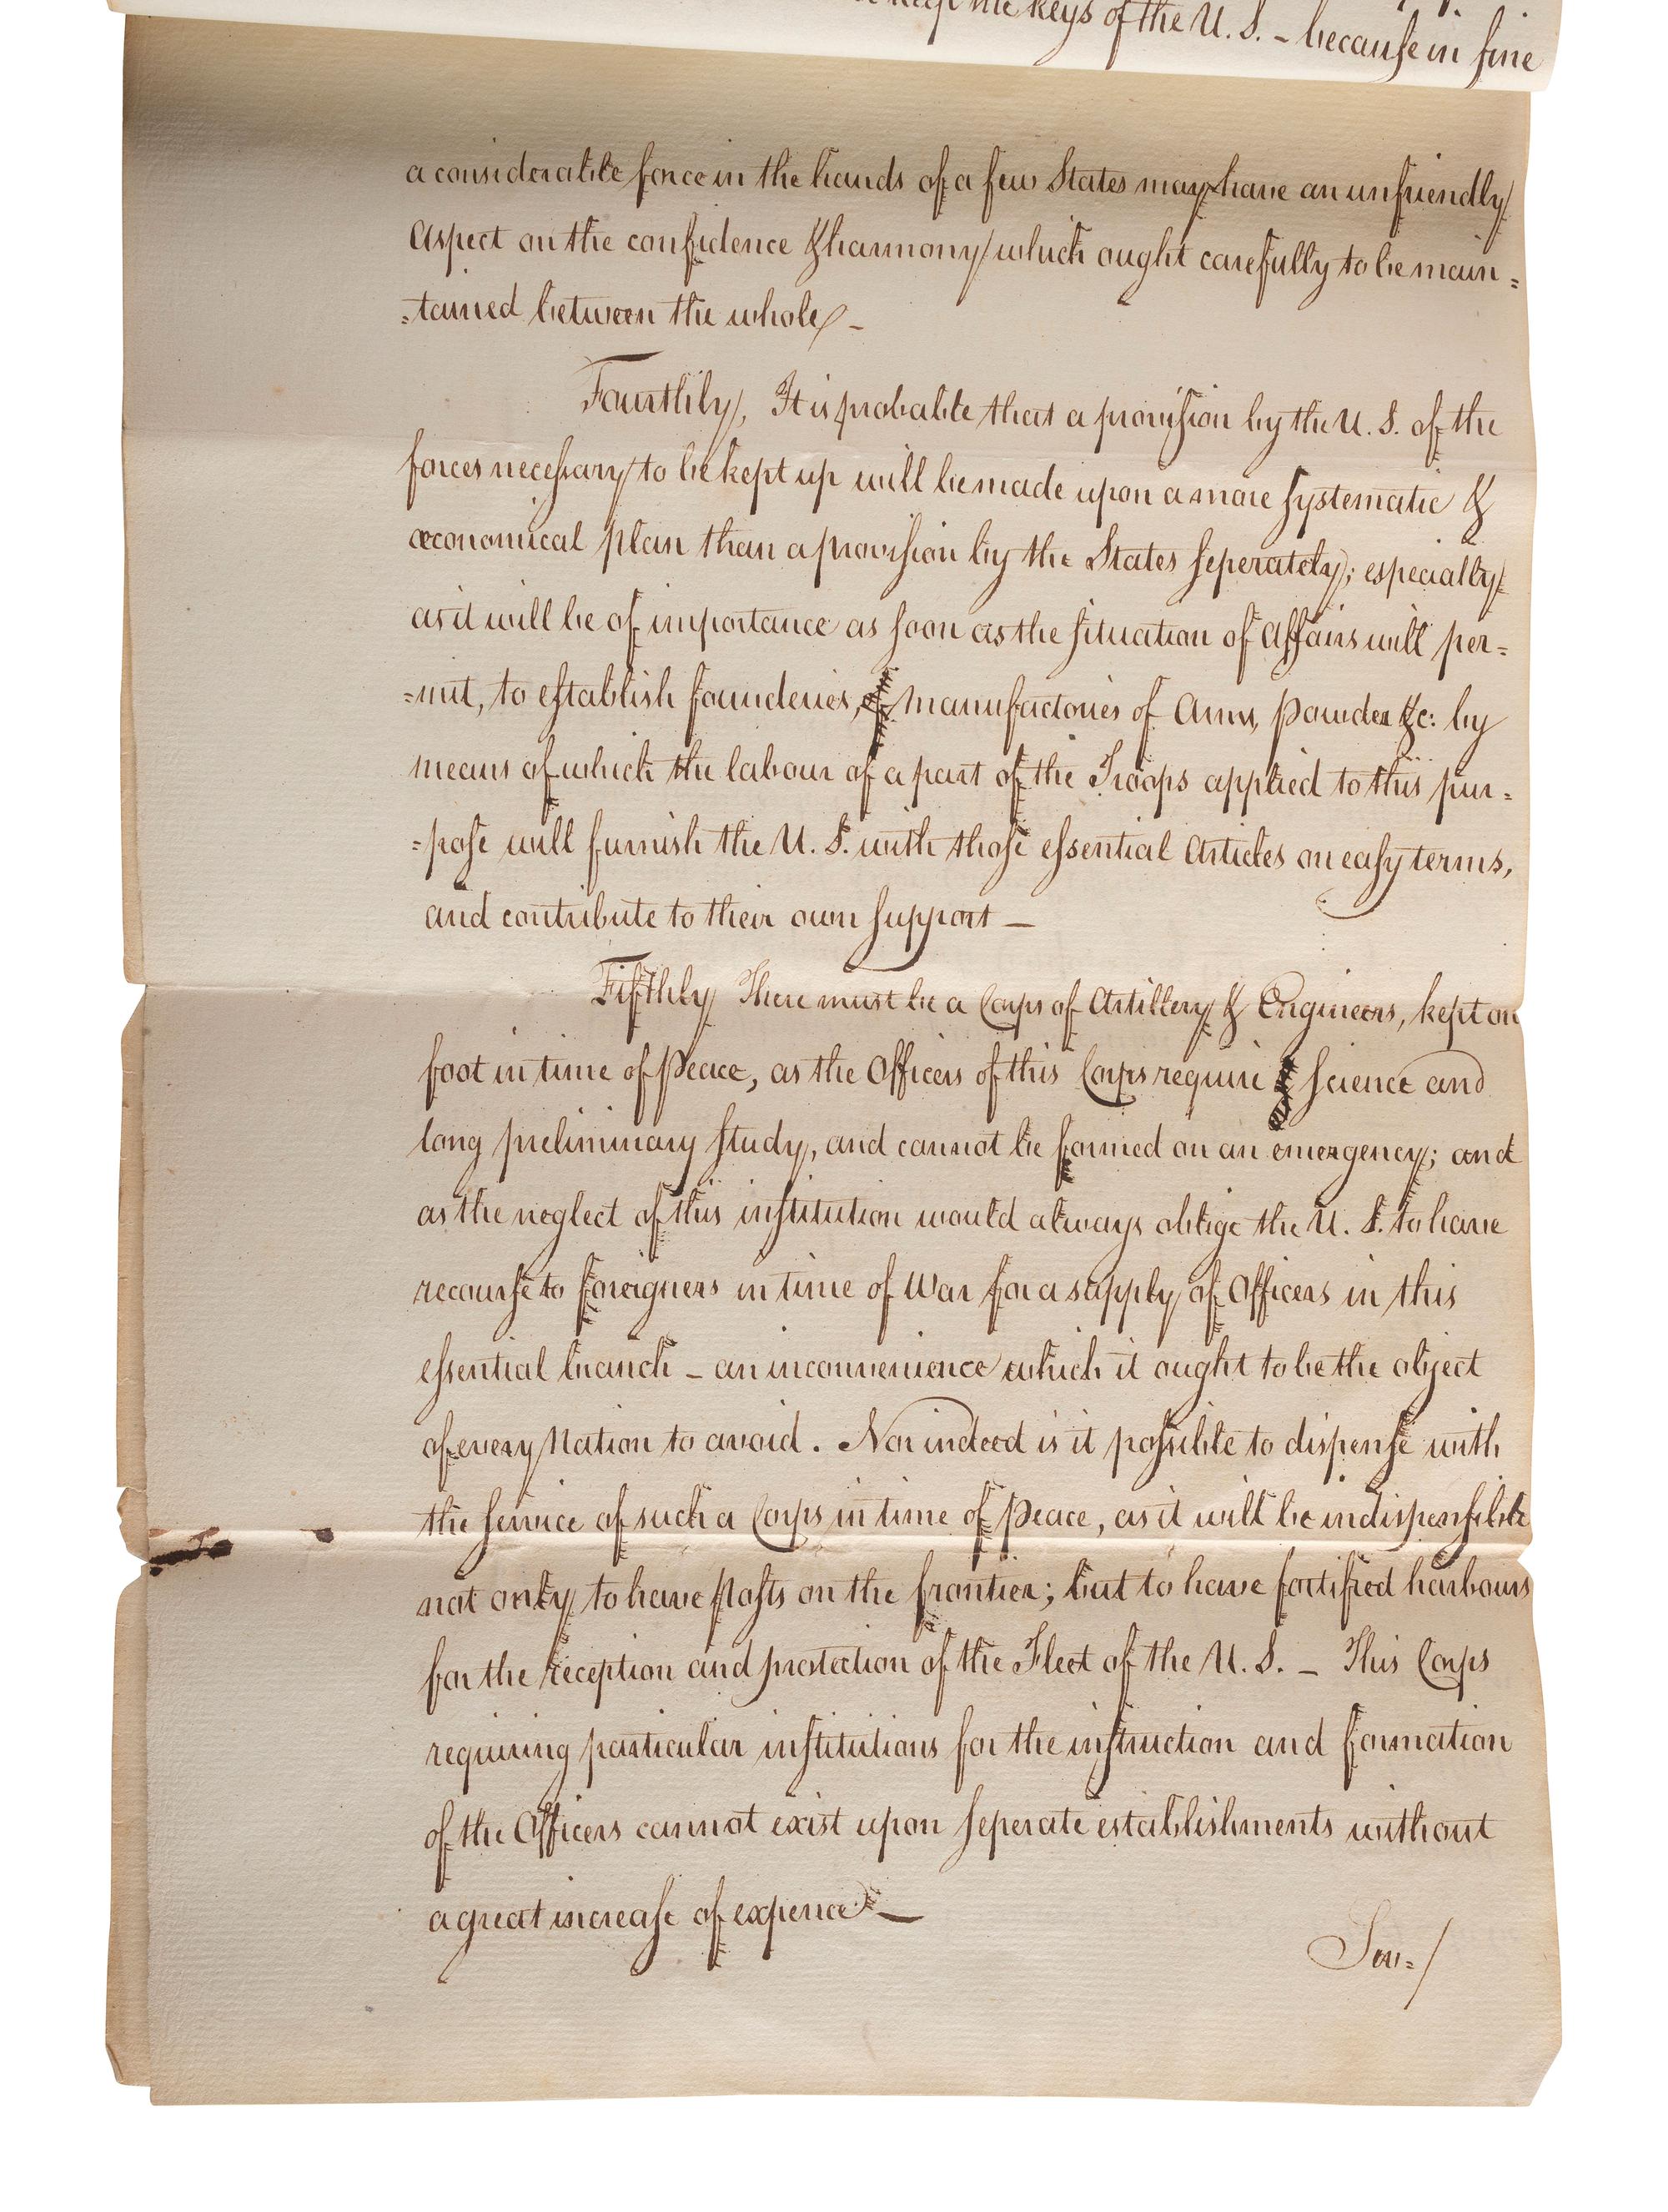 keys of the U. S. – because in fine
a considerable force in the hands of a few States may have an unfriendly
Aspect on the confidence & harmony which ought carefully to be main=
=tained between the whole –
Fourthly, It is probable that a provision by the U. S. of the
forces necessary to be kept up will be made upon a more systematic &
œconomical plan than a provision by the States seperately; especially
as it will be of importance as soon as the situation of Affairs will per=
=mit, to establish founderies, manufactories of Arms, Powder &c: by
means of which the labour of a part of the Troops applied to this pur=
=pose will furnish the U. S. with those essential Articles on easy terms,
and contribute to their own support –
Fifthly There must be a Corps of Artillery & Engineers, kept on
foot in time of Peace, as the Officers of this Corps require science and
long preliminary study, and cannot be formed on an emergency; and
as the neglect of this institution would always oblige the U. S. to have
recourse to foreigners in time of War for a supply of Officers in this
essential branch – an inconvenience which it ought to be the object
of every Nation to avoid. Nor indeed is it possible to dispense with
the service of such a Corps in time of Peace, as it will be indispensible
not only to have Posts on the frontier; but to have fortified harbours
for the reception and protection of the Fleet of the U. S. – This Corps
requiring particular institutions for the instruction and formation
of the Officers cannot exist upon seperate establishments without
a great increase of expence –